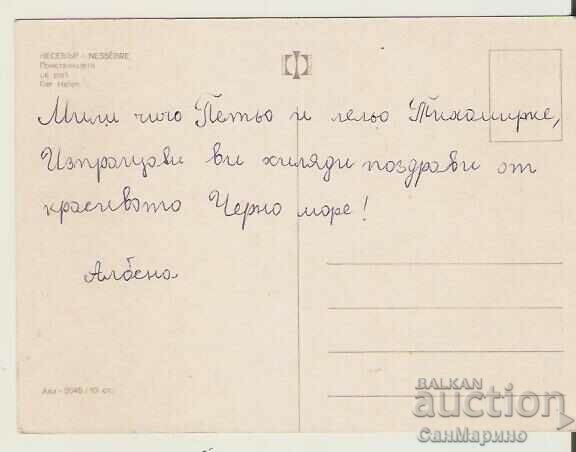 НЕСЕБЪР - NESSÈBRE
Пристанището
Le port
Der Hafen
Мили чичо Петьо и лельо Тихомирке,
Изпращам ви хиляди поздрави от
красивото Черно море!
Албена
BALKAN
auction
СанМарино